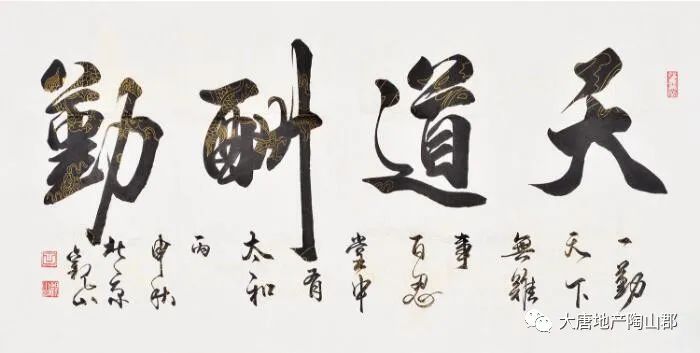 天道酬勤
一勤
天下
無難
事
百忍
堂中
有
太和
丙
申秋
京
山
大唐地产陶山郡